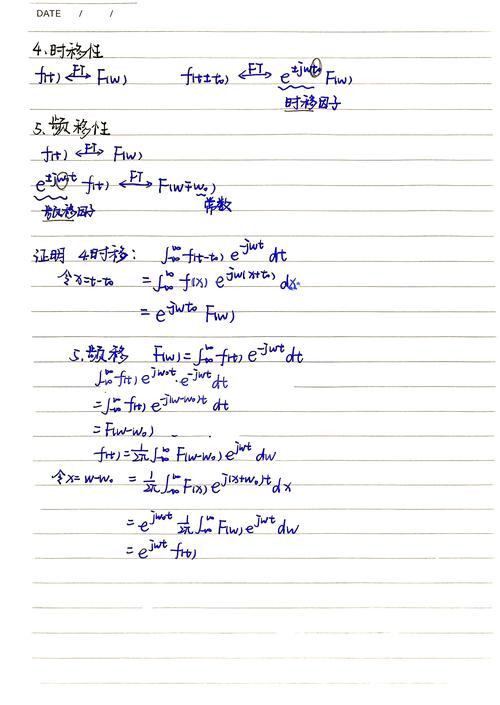 DATE / /
4、时移性
f(t) ⟷FT F(w) f(t±t₀) ⟷FT e^{±jwt₀} F(w)
时移因子
5、频移性
f(t) ⟷FT F(w)
e^{±jw₀t} f(t) ⟷FT F(w∓w₀)
频移因子 常数
证明 4时移： ∫_{-∞}^{∞} f(t-t₀) e^{-jwt} dt
令x=t-t₀ = ∫_{-∞}^{∞} f(x) e^{-jw(x+t₀)} dx
= e^{-jwt₀} F(w)
5、频移 F(w) = ∫_{-∞}^{∞} f(t) e^{-jwt} dt
∫_{-∞}^{∞} f(t) e^{jw₀t}·e^{-jwt} dt
= ∫_{-∞}^{∞} f(t) e^{-j(w-w₀)t} dt
= F(w-w₀)
f(t) = 1/2π ∫_{-∞}^{∞} F(w-w₀) e^{jwt} dw
令x=w-w₀ = 1/2π ∫_{-∞}^{∞} F(x) e^{j(x+w₀)t} dx
= e^{jw₀t} 1/2π ∫_{-∞}^{∞} F(w) e^{jwt} dw
= e^{jw₀t} f(t)